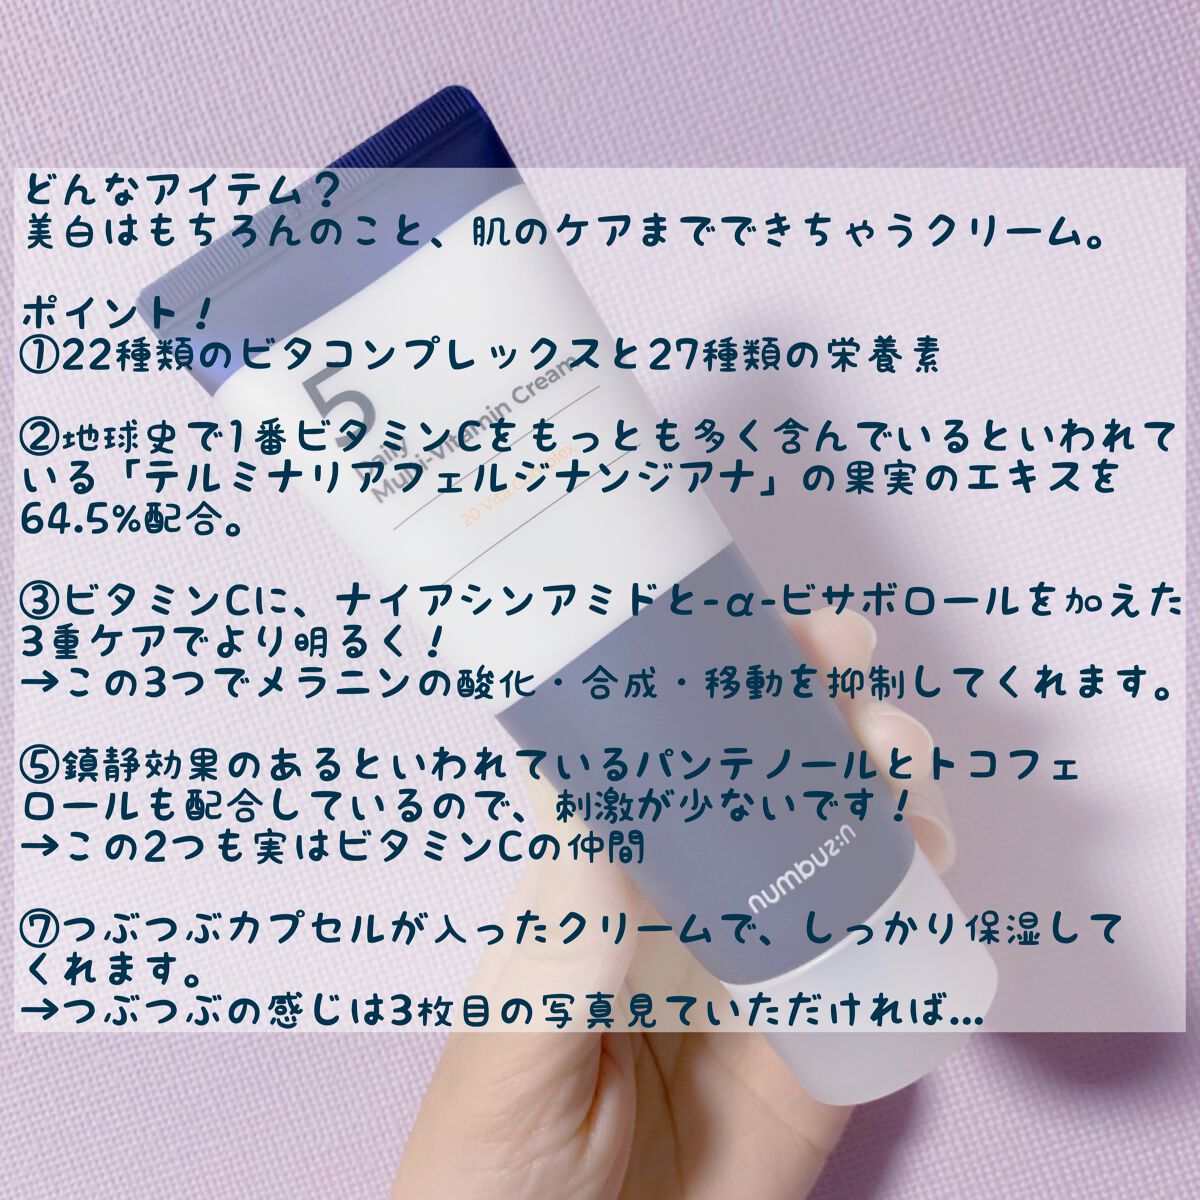 どんなアイテム？
美白はもちろんのこと、肌のケアまでできちゃうクリーム。
ポイント！
①22種類のビタコンプレックスと27種類の栄養素
②地球史で1番ビタミンCをもっとも多く含んでいるといわれて
いる「テルミナリアフェルジナンジアナ」の果実のエキスを
64.5%配合。
③ビタミンCに、ナイアシンアミドと-α-ビサボロールを加えた
3重ケアでより明るく！
→この3つでメラニンの酸化・合成・移動を抑制してくれます。
⑤鎮静効果のあるといわれているパンテノールとトコフェ
ロールも配合しているので、刺激が少ないです！
→この2つも実はビタミンCの仲間
⑦つぶつぶカプセルが入ったクリームで、しっかり保湿して
くれます。
→つぶつぶの感じは3枚目の写真見ていただければ...
5
Daily
Multi-Vitamin Cream
20 Vita Complex
numbuz:n